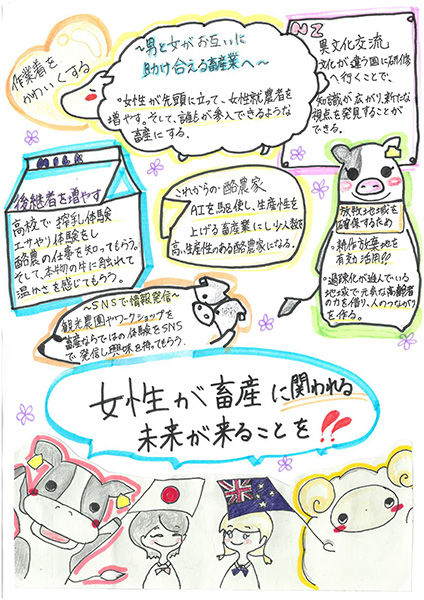 作業着を
かわいくする
~男と女がお互いに
助け合える畜産業へ~
・女性が先頭に立って、女性就農者を
増やす。そして、誰もが参入できるような
畜産にする。
NZ
異文化交流
文化が違う国に研修
へ行くことで、
知識が広がり、新たな
視点を発見することが
できる。
MILK
後継者を増やす
高校で搾乳体験
エサやり体験をし
酪農の仕事を知ってもらう。
そして、本物の牛に触れて
温かさを感じてもらう。
これからの酪農家
AIを駆使し、生産性を
上げる畜産業にし少人数
高い生産性のある酪農家になる。
放牧地域を
確保するため
・耕作放棄地を
有効活用!!
・過疎化が進んでいる
地域で元気な高齢者
の力を借り、人のつながり
を作る。
~SNSで情報発信~
観光農園やワークショップを
畜産ならではの体験をSNS
で発信し興味を持ってもらう。
女性が畜産に関われる
未来が来ることを!!